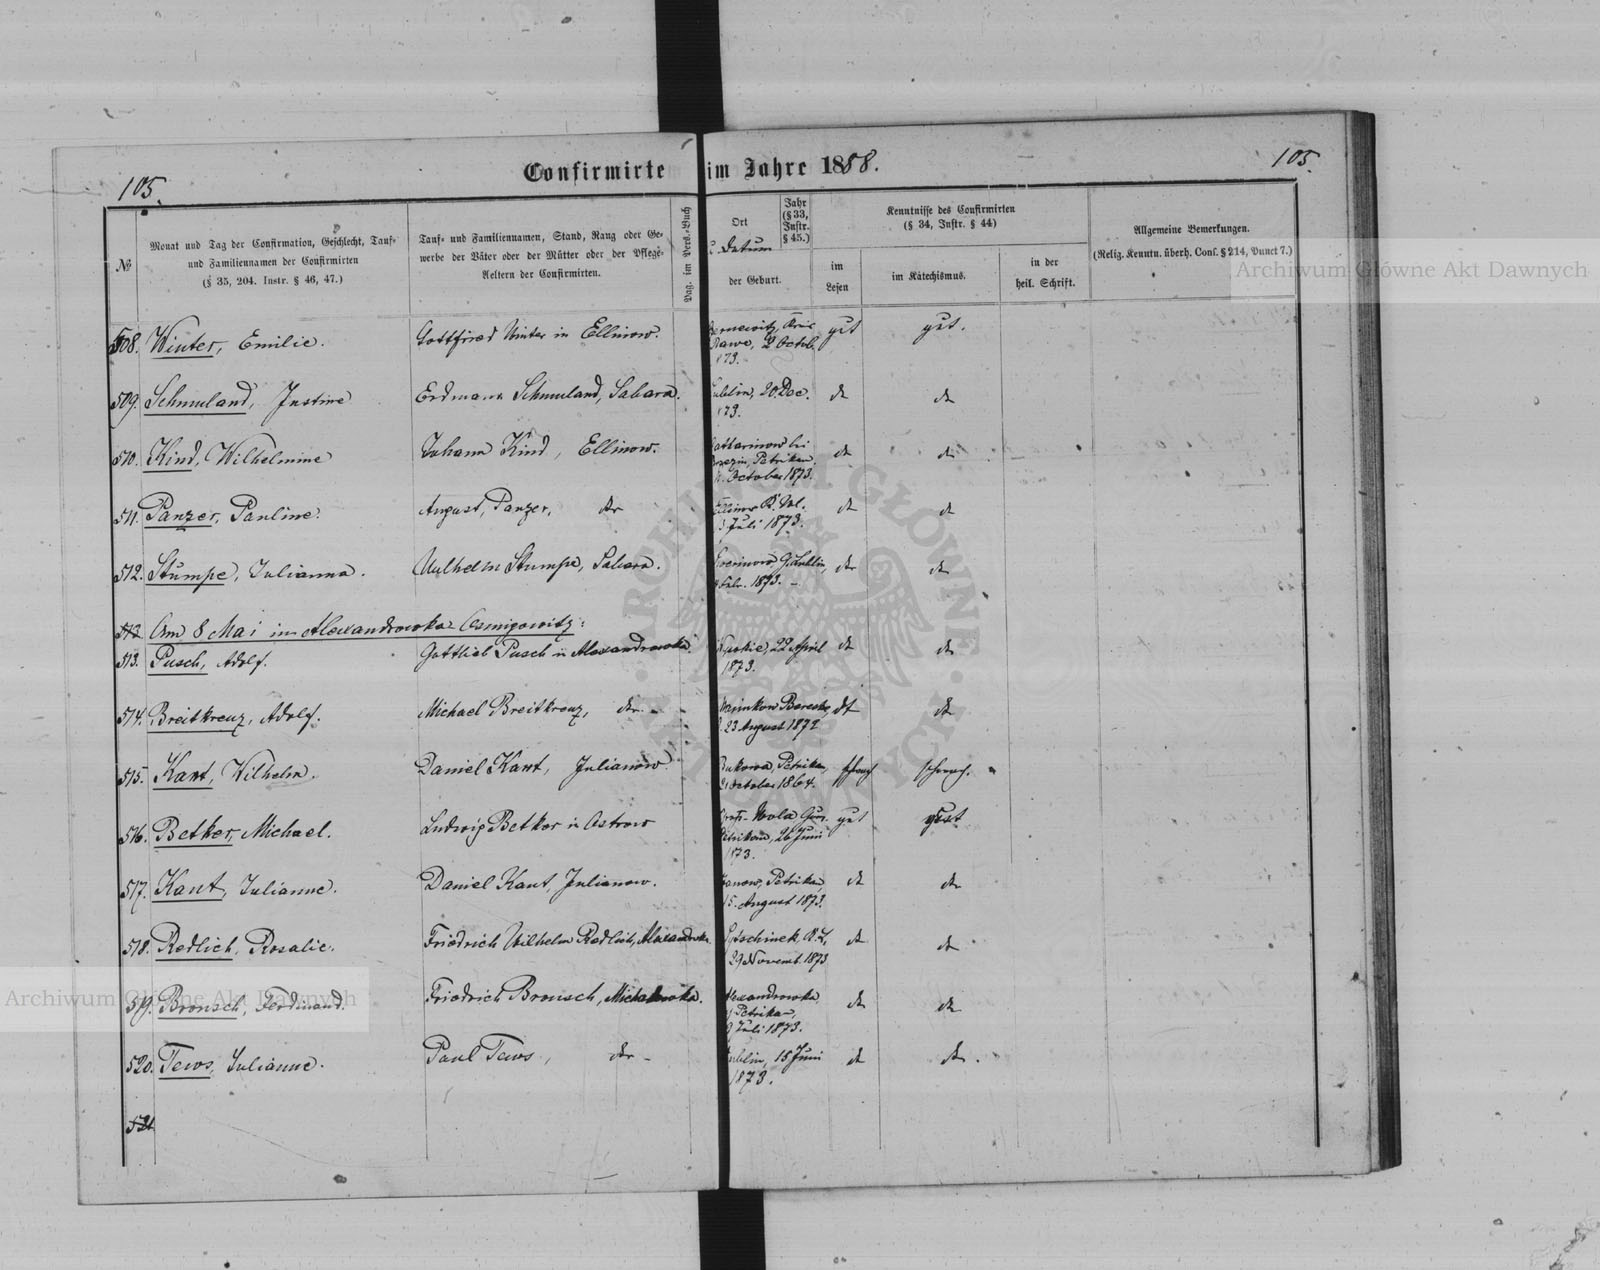 105.
Confirmirte im Jahre 1888.
105.
№
Monat und Tag der Confirmation, Geschlecht, Tauf=
und Familiennamen der Confirmirten
(§ 35, 204. Instr. § 46, 47.)
Tauf= und Familiennamen, Stand, Rang oder Ge=
werbe der Väter oder der Mütter oder der Pflege=
Aeltern der Confirmirten.
Pag. im Pers.=Buch
Ort
Datum
der Geburt.
Jahr
(§ 33,
Instr.
§ 45.)
Kenntnisse des Confirmirten
(§ 34, Instr. § 44)
im
Lesen
im Katechismus.
in der
heil. Schrift.
Allgemeine Bemerkungen.
(Relig. Kenntn. überh. Conf. § 214, Punct 7.)
Archiwum Główne Akt Dawnych
508. Winter, Emilie. Gottfried Winter in Ellinow. gut gut.
2 Octob.
509. Schmuland, Justine Erdmann Schmuland, Sabara. Lublin, 20 Dec. do do
510. Kind, Wilhelmine Johann Kind, Ellinow. Catharinow bei do do
Petrikau,
October 1873.
511. Panzer, Pauline. August Panzer, do do do
Juli 1873.
512. Stumpe, Julianna. Wilhelm Stumpe, Sabara. do do
Febr. 1873.
513 Am 8 Mai in Alexandrowka-Osmigowitz:
513. Pusch, Adolf. Gottlieb Pusch in Alexandrowka. 22 April do do
1873.
514. Breitkreuz, Adolf. Michael Breitkreuz, do do do
23 August 1872
515. Kant, Wilhelm. Daniel Kant, Julianow Bukowa, Petrikau, schwach schwach.
October 1864.
516. Betker, Michael. Ludwig Betker in Ostrow Wola Gouv. gut gut
Petrikau, 26 Juni
1873.
517. Kant, Julianne. Daniel Kant, Julianow. Janow, Petrikau, do do
15. August 1873.
518. Redlich, Rosalie. Friedrich Wilhelm Redlich, Alexandrowka do do
29 Novemb. 1873
519. Bronsch, Ferdinand. Friedrich Bronsch, Michalowka. Alexandrowka, do do
Petrikau,
Juli 1873.
520. Tews, Julianne. Paul Tews, do Lublin, 15 Juni do do
1873.
521
Archiwum Główne Akt Dawnych
ARCHIWUM GŁÓWNE AKT DAWNYCH